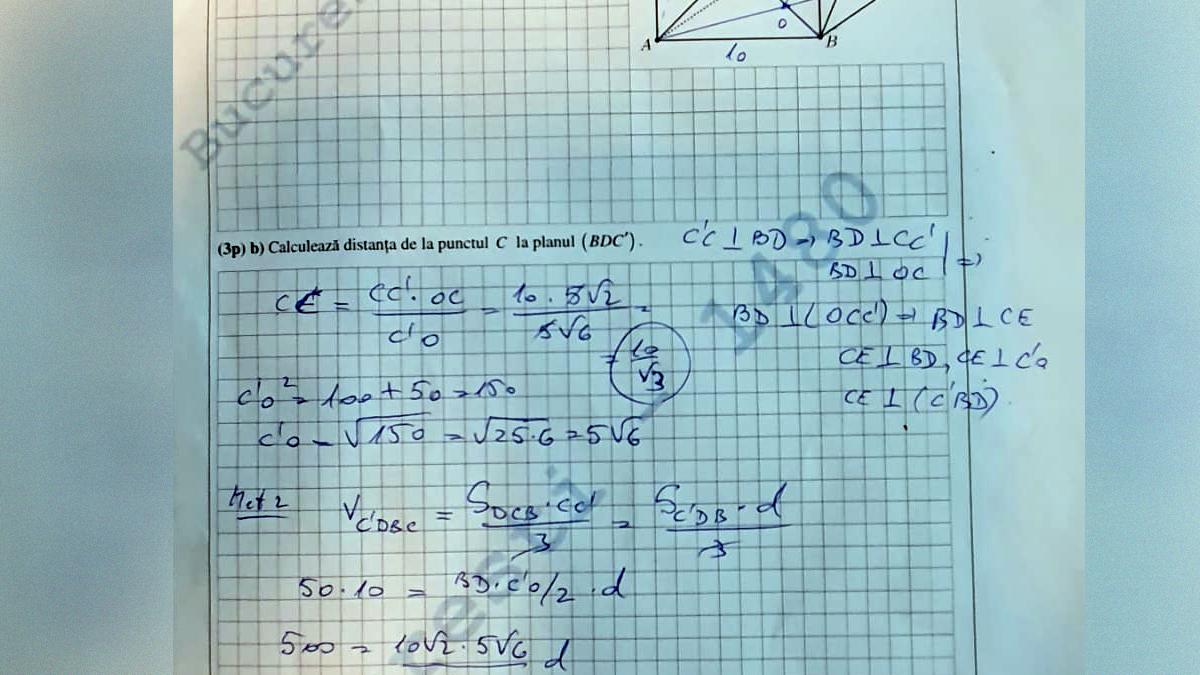 Bucure
A
O
B
10
(3p) b) Calculează distanța de la punctul C la planul (BDC′).
C′C ⊥ BD → BD ⊥ CC′
BD ⊥ OC | =>
BD ⊥ (OCC′) → BD ⊥ CE
CE ⊥ BD, CE ⊥ C′O
CE ⊥ (C′BD).
CE = CC′·OC / C′O = 10·5√2 / 5√6 =
= 10/√3
C′O² = 100 + 50 = 150
C′O = √150 = √25·6 = 5√6
Met 2
V C′DBC = S DCB · CC′ / 3 = S C′DB · d / 3
50·10 = BD·C′O/2 · d
500 = 10√2·5√6 d
1480